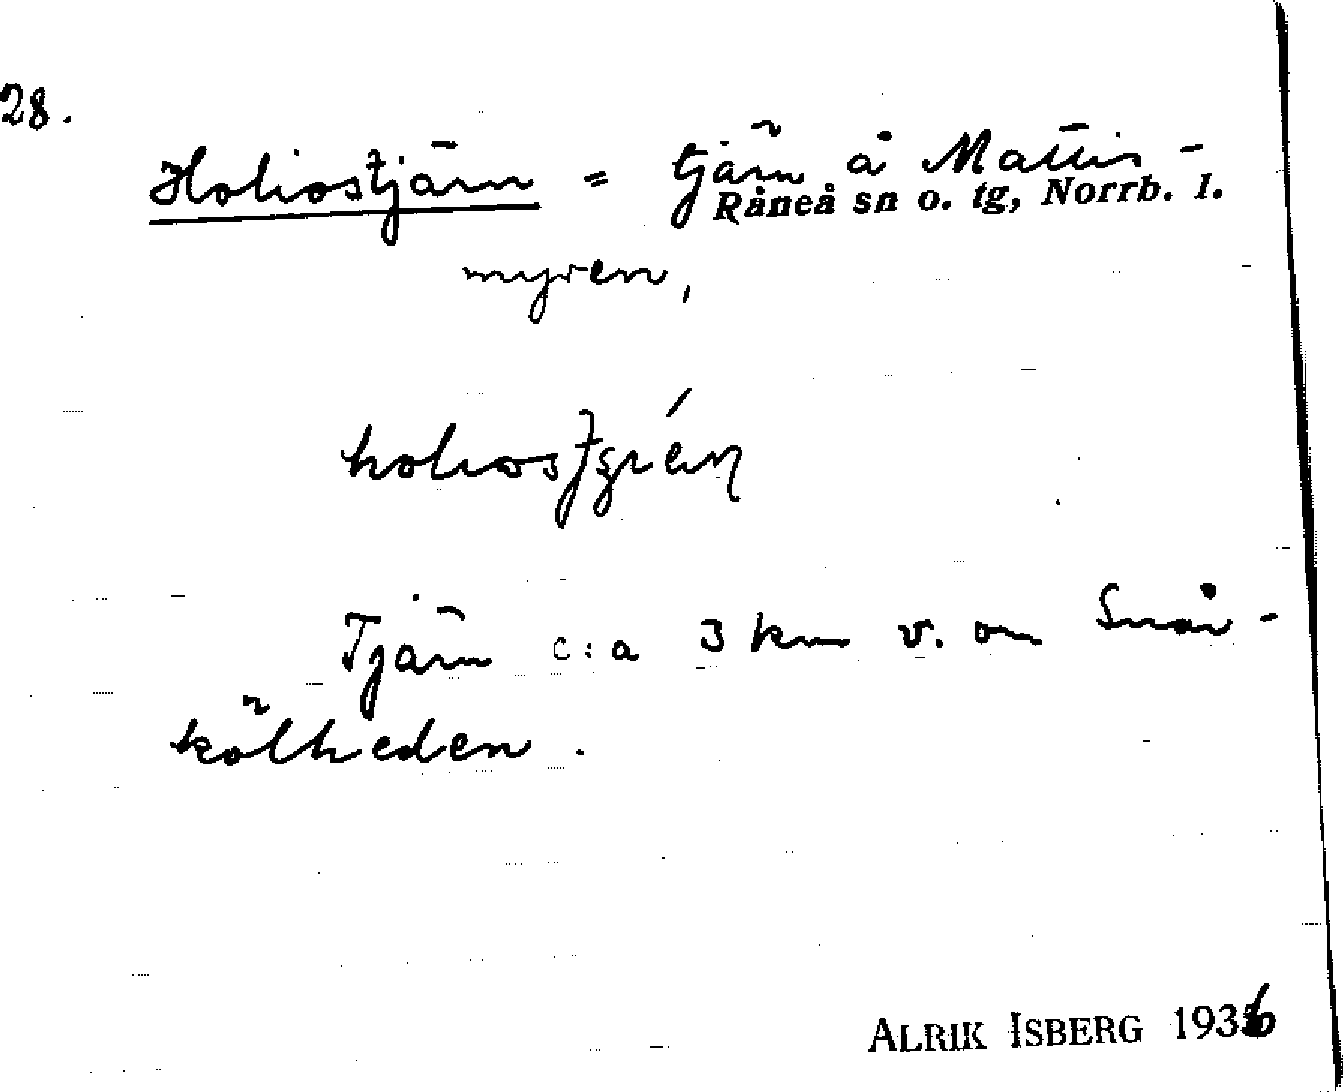 28.
Holiostjärn = tjärn å Mattis-
Råneå sn o. tg, Norrb. l.
myren,
Tjärn c:a 3 km v. om Snår-
kölheden.
ALRIK ISBERG 1936